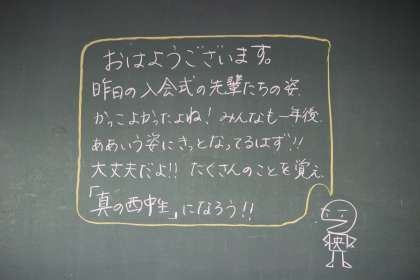 おはようございます。
昨日の入会式の先輩たちの姿
かっこよかったよね！みんなも一年後
ああいう姿にきっとなってるはず!!
大丈夫だよ!! たくさんのことを覚え
「真の西中生」になろう!!
央